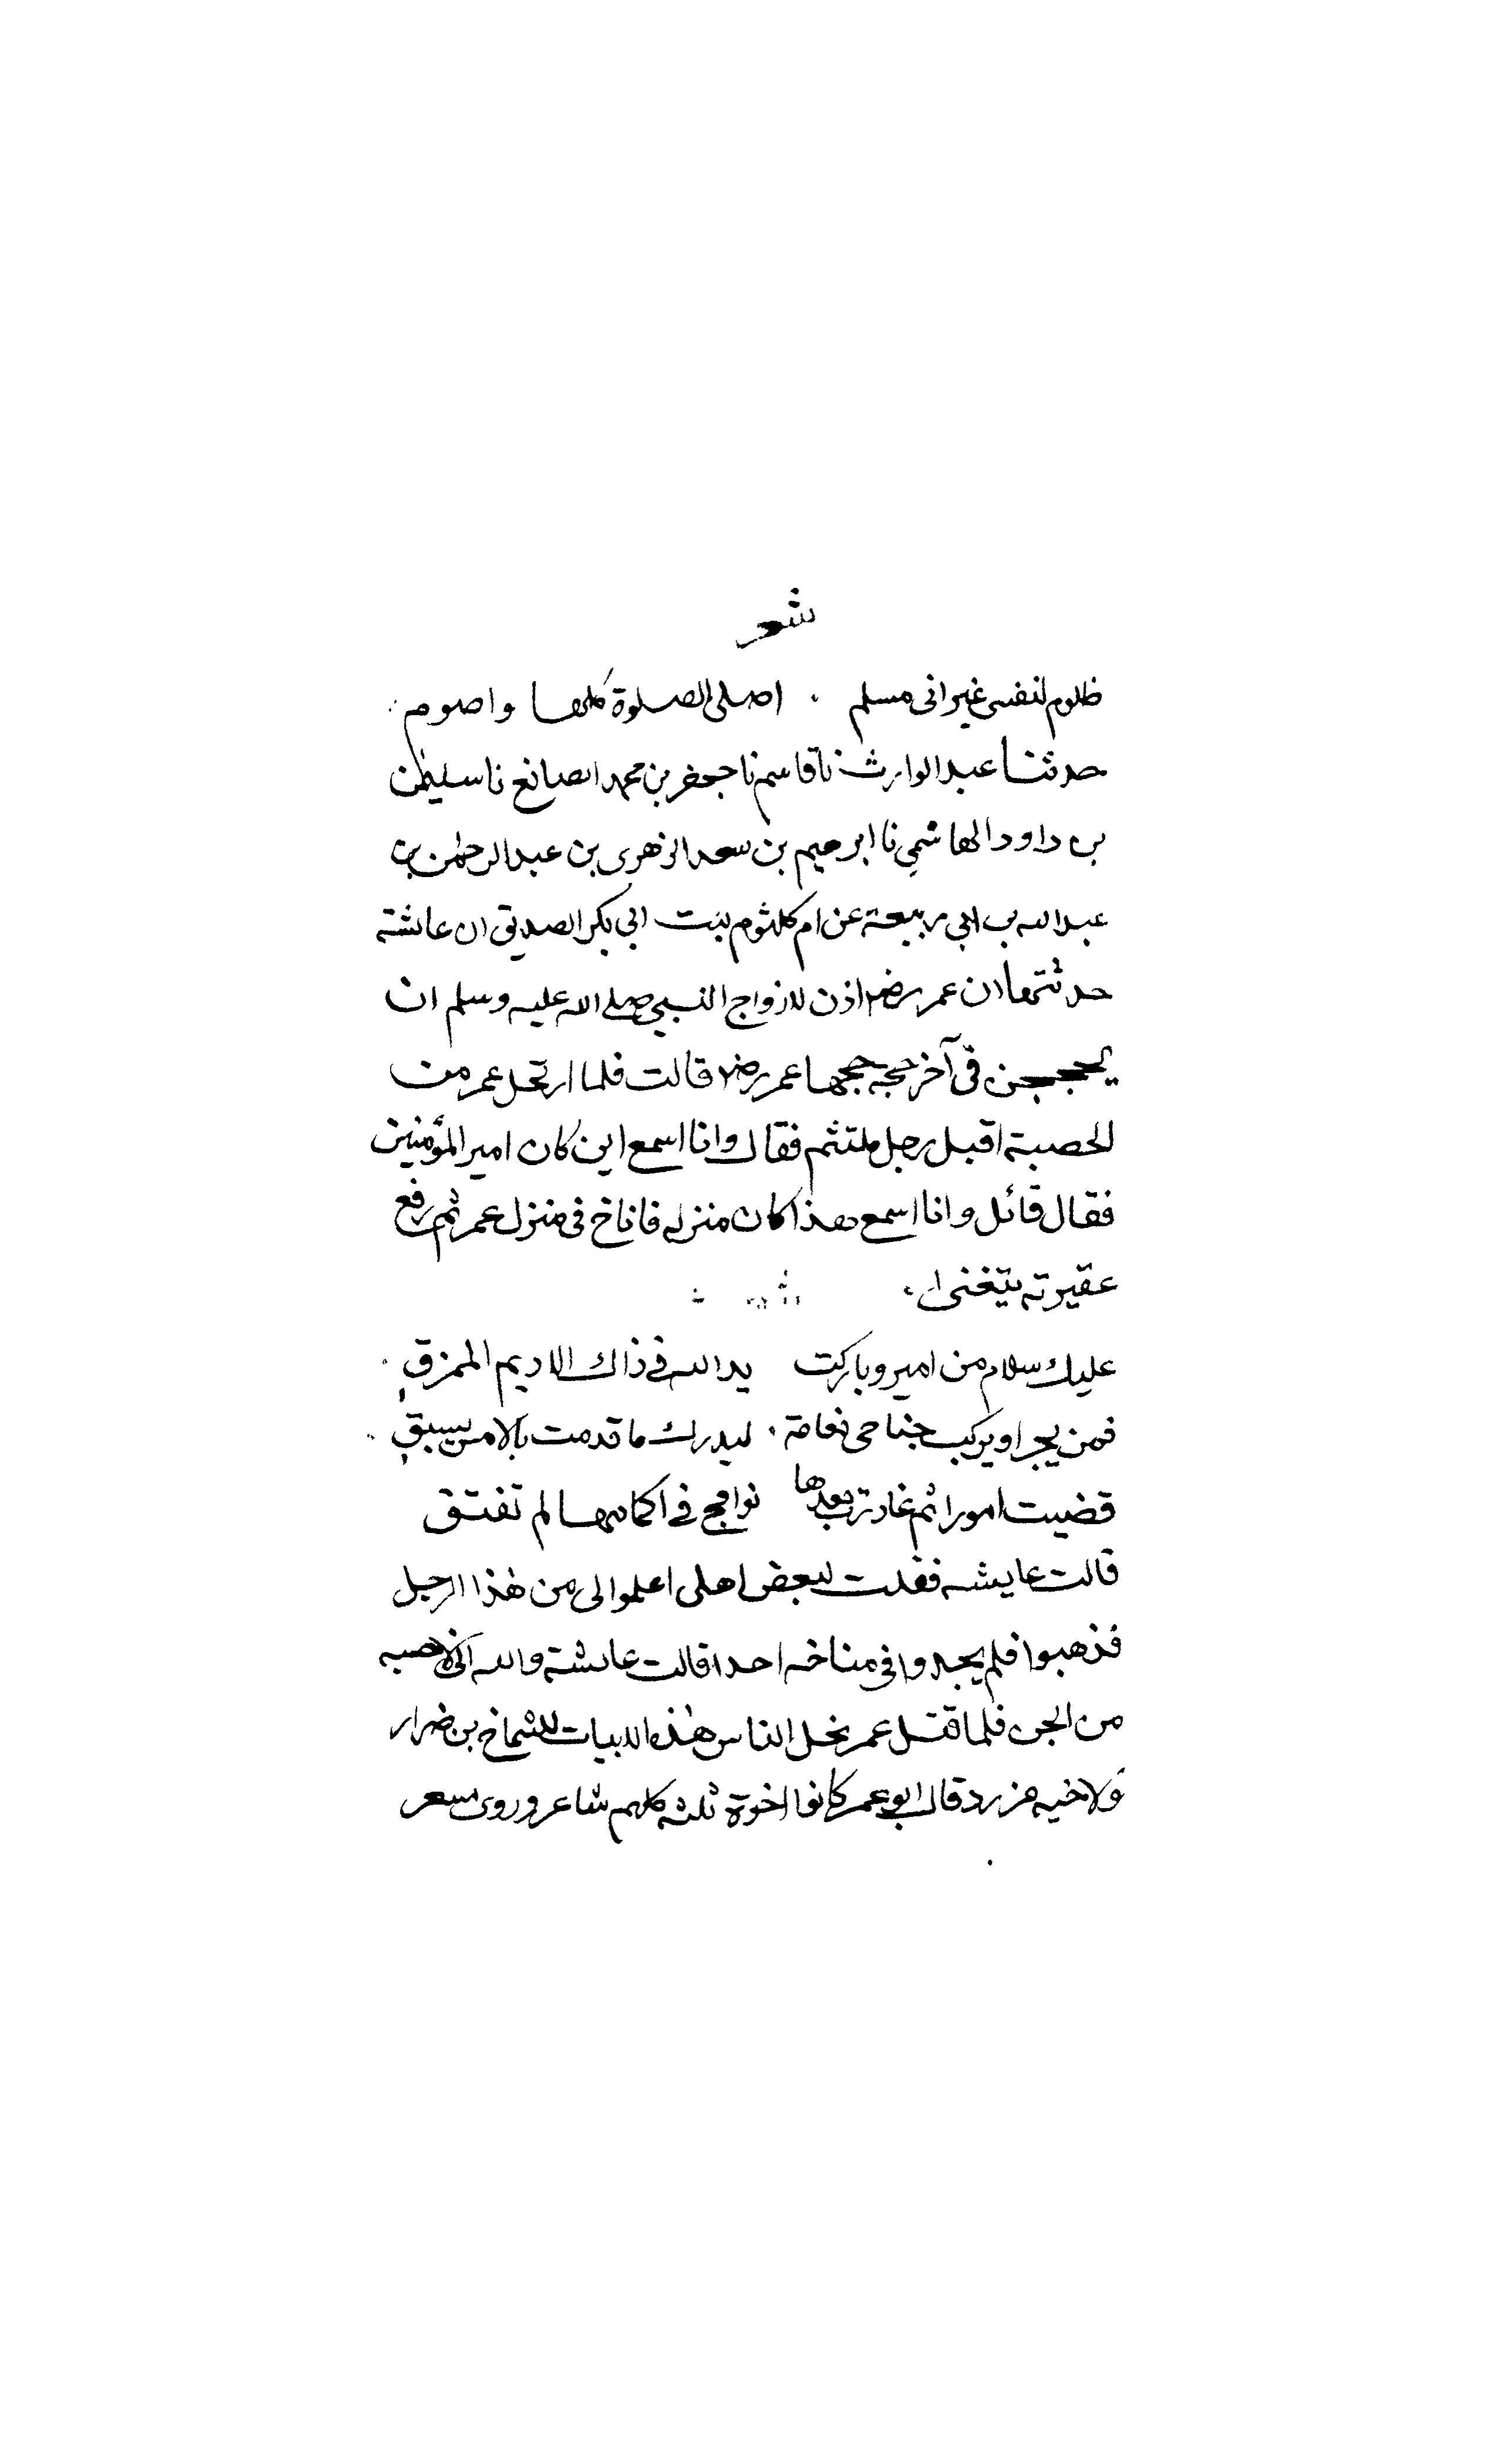 شعر
ظلوم لنفسى غير انى مسلم ٠ اصلى الصلوة كلها واصوم
حدثنا عبد الوارث نا قاسم نا جعفر بن محمد الصائغ نا سليمٰن
بن داود الهاشمي نا ابرهيم بن سعد الزهرى بن عبد الرحمٰن بن
عبد الله بن ابي ربيعة عن ام كلثوم بنت ابي بكر الصديق ان عائشة
حدثتها ان عمر رضـ اذن لازواج النبي صلى الله عليه وسلم ان
يحججن فى آخر حجة حجها عمر رضـ قالت فلما ارتحل عمر من
الحصبة اقبل رجل ملتثم فقال وانا اسمع اين كان امير المؤمنين
فقال قائل وانا اسمع هذا كان منزله فاناخ فى منزل عمر ثم رفع
عقيرته يتغنى
عليك سلام من امير وباركت يد الله فى ذاك الاديم الممزق
فمن يجر او يركب جناحى نعامة ٠ ليدرك ما قدمت بالامس يسبق
قضيت امورا ثم غادرت بعدها نوافج فى اكمامها لم تفتق
قالت عايشه فقلت لبعض اهلى اعلموا لى من هٰذا الرجل
فذهبوا فلم يجدوا فى مناخه احدا قالت عائشة والله انى لاحسبه
من الجن فلما قتل عمر نحل الناس هٰذه الابيات للشماخ بن ضرار
ولاخيه مزرد قال ابو عمر كانوا اخوة ثلثة كلهم شاعر وروى مسعر